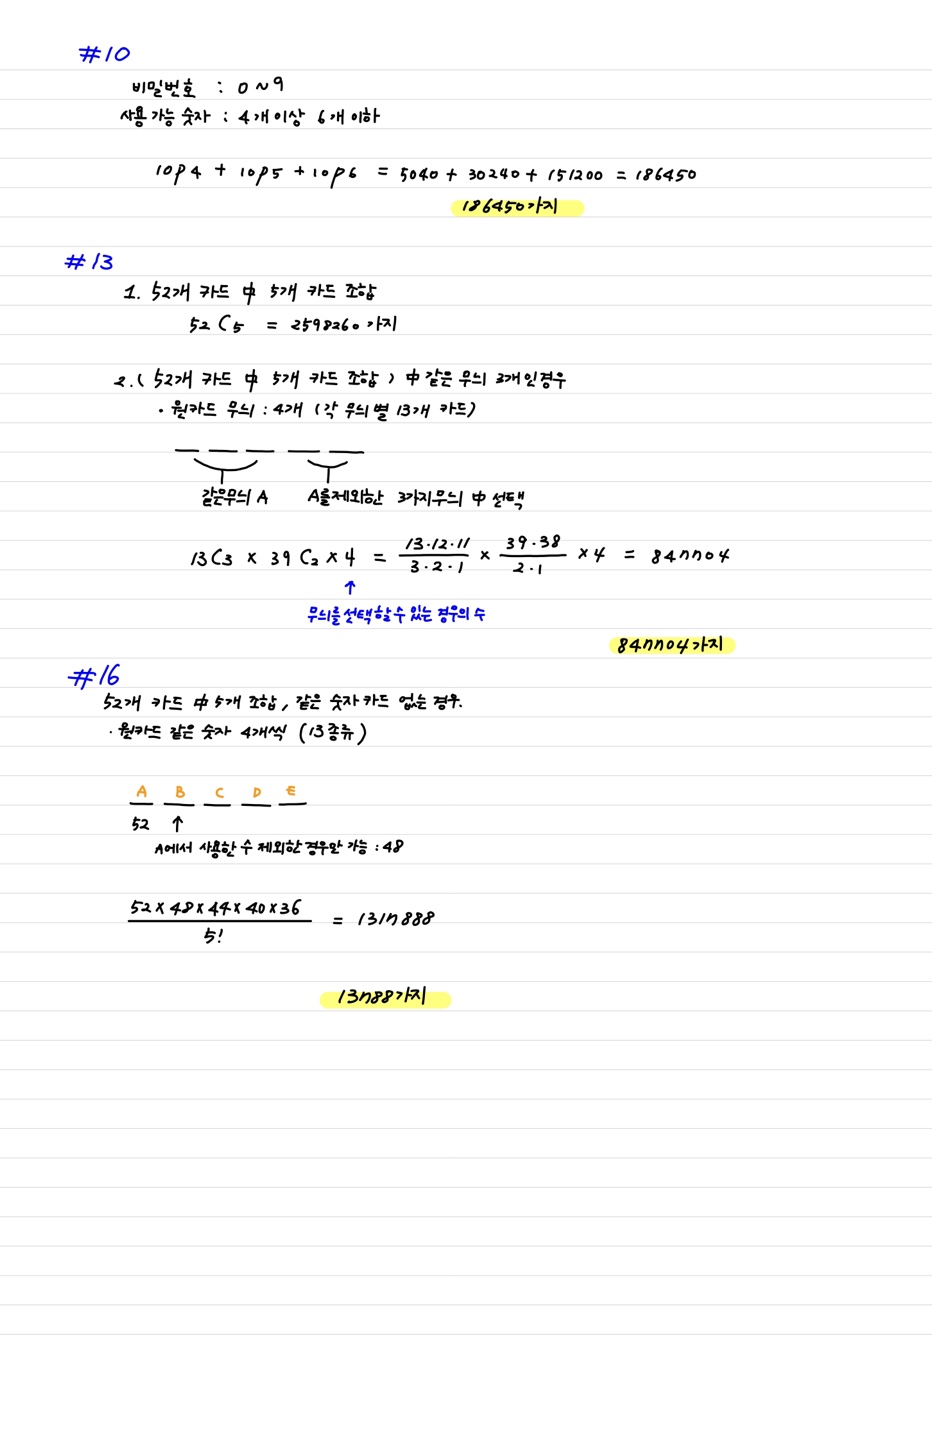 #10
비밀번호 : 0 ~ 9
사용 가능 숫자 : 4개 이상 6개 이하
10P4 + 10P5 + 10P6 = 5040 + 30240 + 151200 = 186450
186450가지
#13
1. 52개 카드 中 5개 카드 조합
52 C 5 = 2598260가지
2. ( 52개 카드 中 5개 카드 조합 ) 中 같은 무늬 3개인 경우
· 원카드 무늬 : 4개 ( 각 무늬 별 13개 카드 )
같은무늬 A A를 제외한 3가지 무늬 中 선택
13C3 × 39C2 × 4 = 13·12·11/3·2·1 × 39·38/2·1 × 4 = 847704
↑
무늬를 선택할 수 있는 경우의 수
847704가지
#16
52개 카드 中 5개 조합, 같은 숫자 카드 없는 경우.
· 원카드 같은 숫자 4개씩 (13종류)
A B C D E
52 ↑
A에서 사용한 수 제외한 경우만 가능 : 48
52 × 48 × 44 × 40 × 36 / 5! = 1317888
13788가지